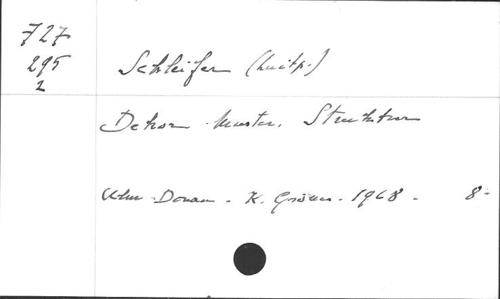 727
295
2
Schleifer (Luitp.)
Dekor. Muster. Struktur
Ulm-Donau - K. Gröner - 1968 - 8-